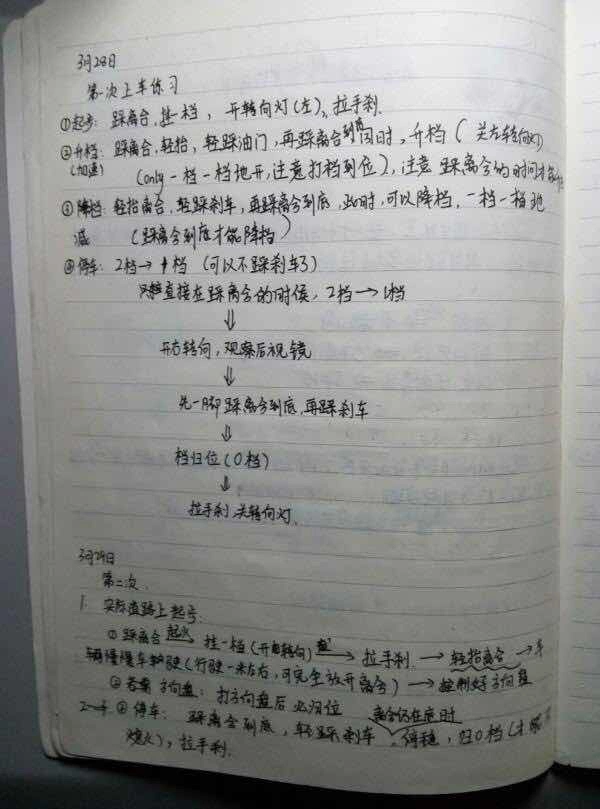 3月28日
第一次上车练习
①起步: 踩离合, 挂一档, 开转向灯(左), 拉手刹.
②升档: 踩离合, 轻抬, 轻踩油门, 再踩离合到底同时, 升档 ( 关左转向灯)
(加速) (only 一档一档地升, 注意打档到位), 注意 踩离合的时间才能
③降档: 轻抬离合, 轻踩刹车, 再踩离合到底, 此时, 可以降档, 一档一档地
减 (踩离合到底才能降档)
④停车: 2档→1档 (可以不踩刹车了)
直接在踩离合的时候, 2档→1档
⇓
开右转向, 观察后视镜
⇓
先一脚踩离合到底, 再踩刹车
⇓
档归位(0档)
⇓
拉手刹 关转向灯.
3月29日
第二次.
1. 实际道路上起步.
①踩离合 起火 挂一档(开转向) → 拉手刹. → 轻抬离合 → 车
辆慢慢车驶(行驶一米左右, 可完全放开离合) → 控制好方向盘
② 方向盘: 打方向盘后必归位
④停车: 踩离合到底, 轻踩刹车 离合仍在底时 停稳, 归0档(才
熄火), 拉手刹.